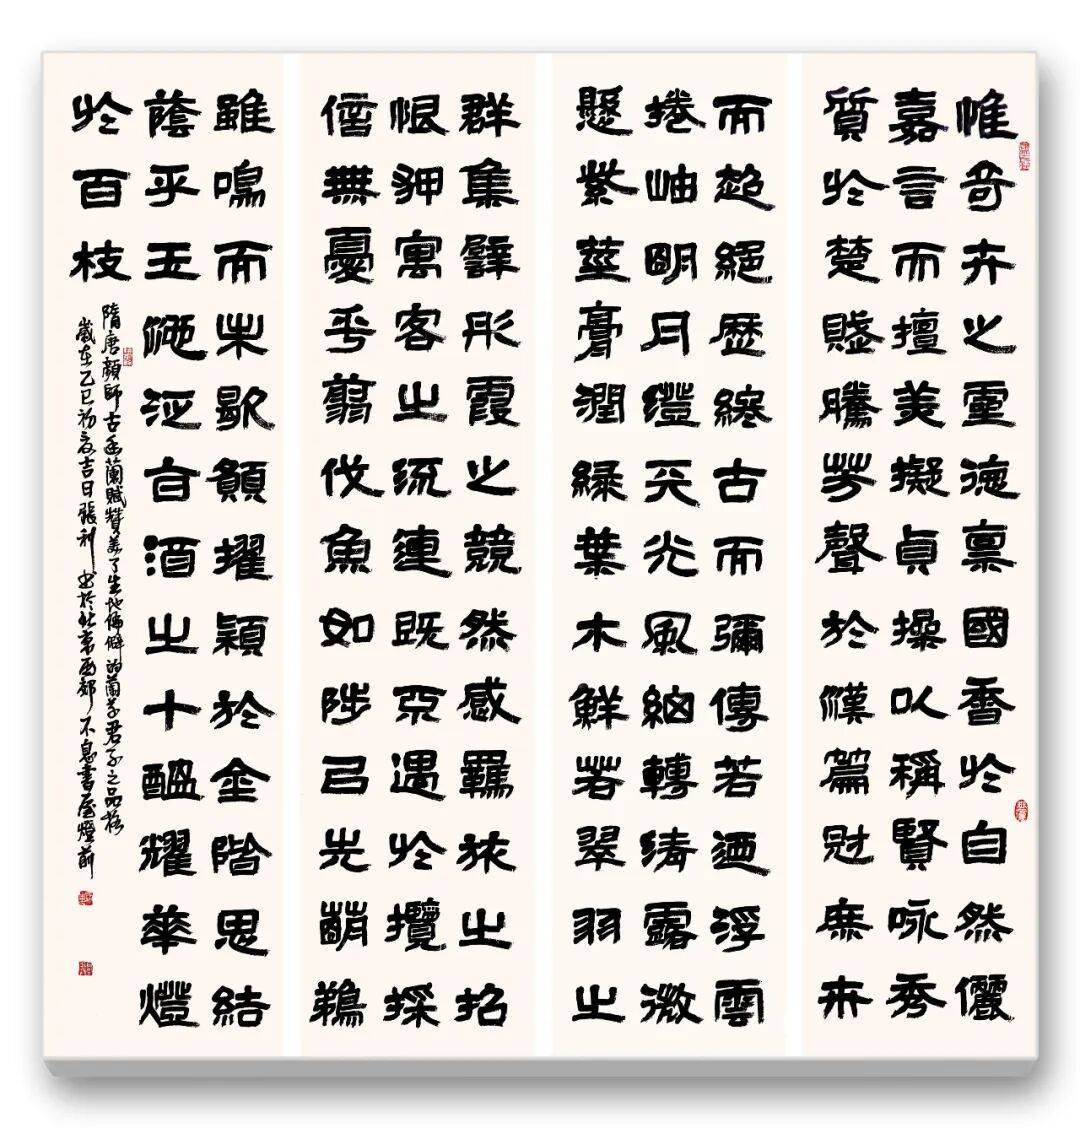 惟奇卉之靈德禀國香於自然儷
嘉言而擅美擬貞操以稱賢咏秀
質於楚賦騰芳聲於漢篇冠庶卉
而超絕歷終古而彌傳若迺浮雲
捲岫明月澄天光風細轉清露微
懸紫莖膏潤綠葉木鮮若翠羽之
群集譬彤霞之競然感羈旅之招
恨狎寓客之流連既不遇於攬採
信無憂乎翦伐魚如陟㠯先萌鵜
雖鳴而未歇願擢穎於金階思結
蔭乎玉池泛旨酒之十醖耀華燈
於百枝
隋唐顏師古幽蘭賦贊美了生地偏僻的蘭草君子之品格
歲在乙巳初夏吉日張利書於北京西郊不息書屋燈前